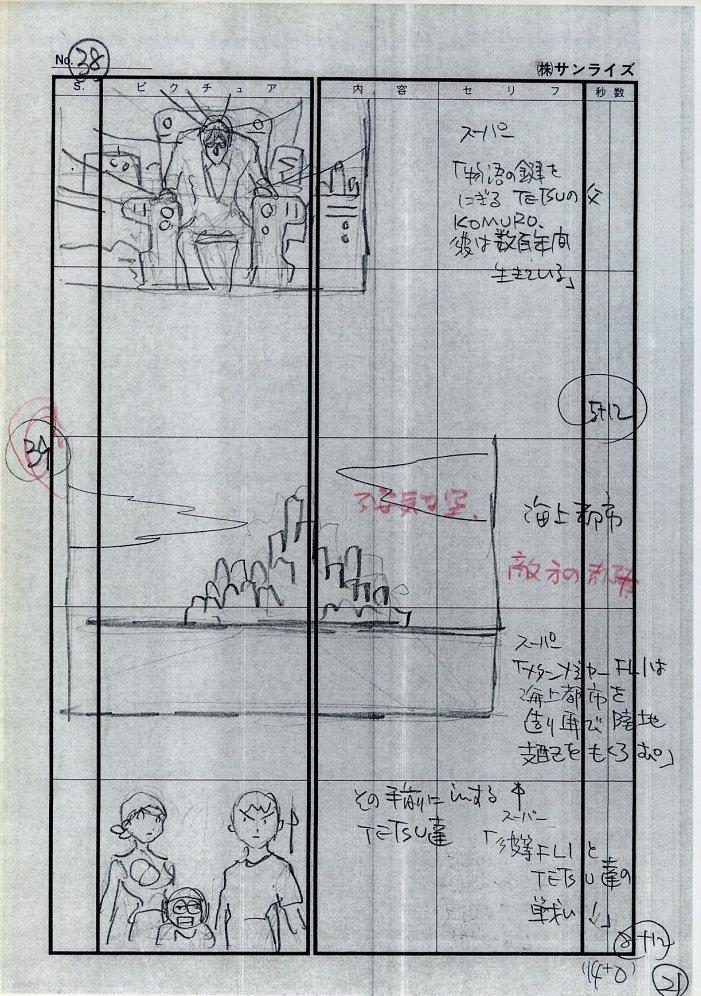 No. 38
㈱サンライズ
S. ピクチュア 内容 セリフ 秒数
スーパー
「物語の鍵を
にぎる TETSUの父
KOMURO、
彼は数百年間
生きている」
5+12
39
不吉気な空、
海上都市
敵方の
スーパー
FLIは
海上都市を
造り再び陸地
支配をもくろむ」
その手前に inする
TETSU達
スーパー
「彼等FLIと
TETSU達の
戦い
8+12
(14+0)
21